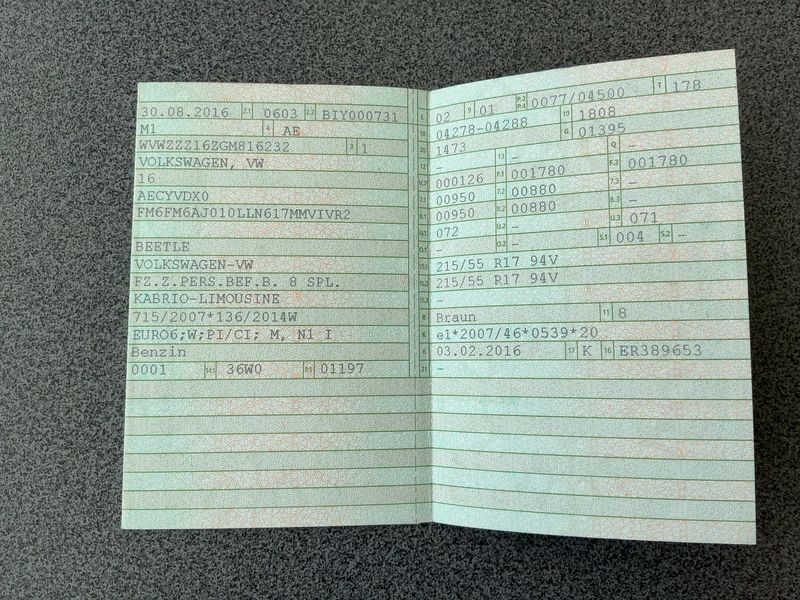 30.08.2016 2.1 0603 2.2 BIY000731
M1 4 AE
WVWZZZ16ZGM816232 3 1
VOLKSWAGEN, VW
16
AECYVDX0
FM6FM6AJ010LLN617MMVIVR2
BEETLE
VOLKSWAGEN-VW
FZ.Z.PERS.BEF.B. 8 SPL.
KABRIO-LIMOUSINE
715/2007*136/2014W
EURO6;W;PI/CI; M, N1 I
Benzin
0001 14.1 36W0 P.1 01197
02 9 01 P.2 P.4 0077/04500 T 178
18 04278-04288 19 1808
20 1473 G 01395
12 - 13 - Q -
V.7 000126 F.1 001780 F.2 001780
7.1 00950 7.2 00880 7.3 -
8.1 00950 8.2 00880 8.3 -
U.1 072 U.2 - U.3 071
O.1 - O.2 - S.1 004 S.2 -
15.1 215/55 R17 94V
15.2 215/55 R17 94V
15.3 -
R Braun 11 8
K e1*2007/46*0539*20
6 03.02.2016 17 K 16 ER389653
21 -